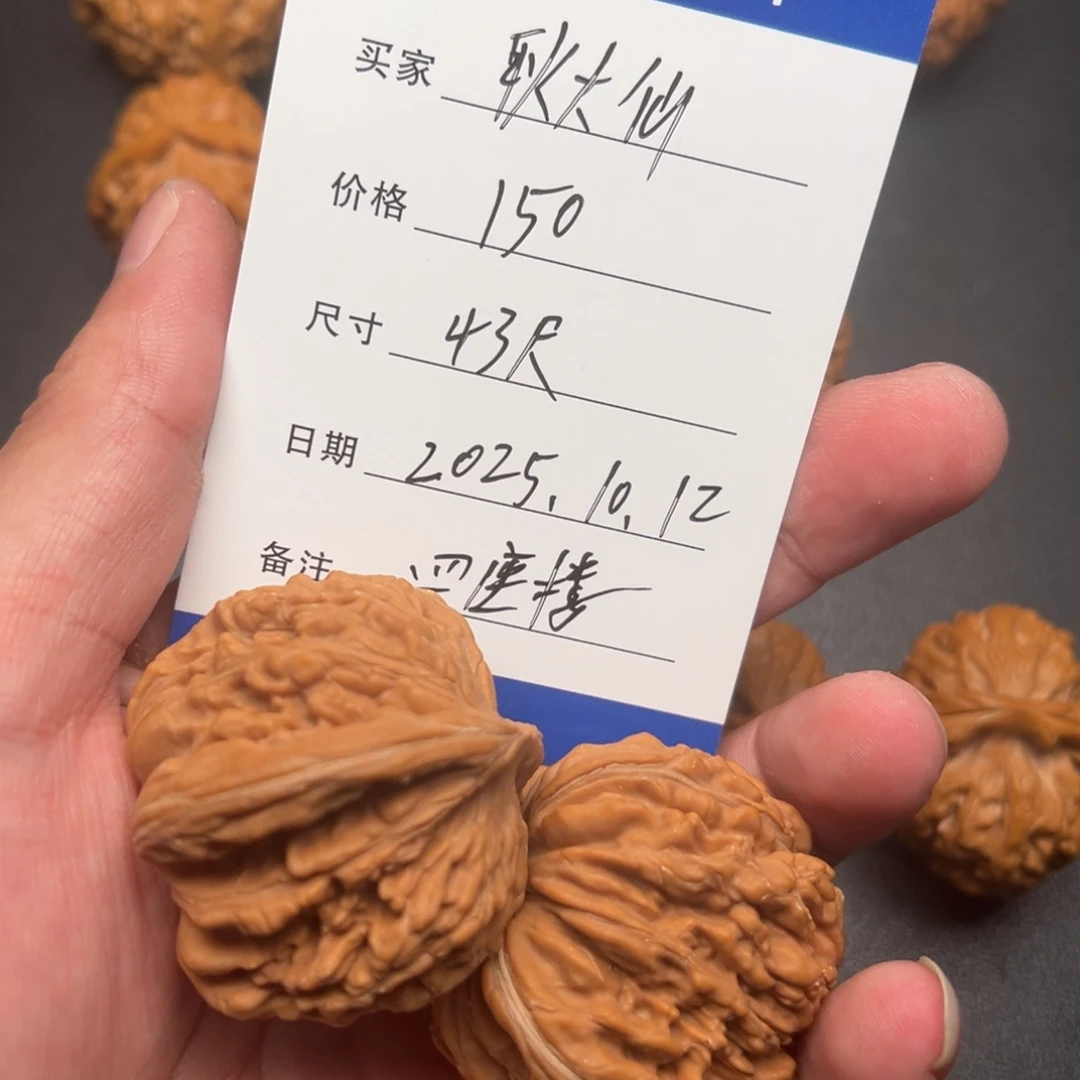 买家 耿大仙
价格 150
尺寸 43尺
日期 2025.10.12
备注 四座楼